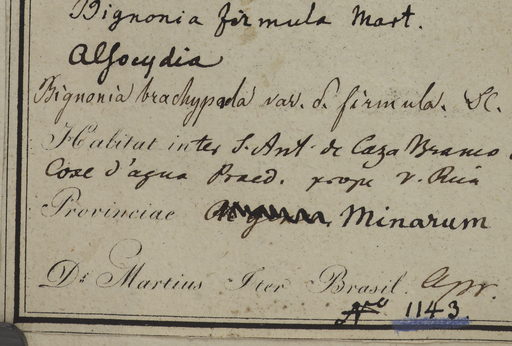 Bignonia firmula Mart.
Alsocydia
Bignonia brachypoda var. δ. firmula. DC.
Habitat inter S. Ant. de Caza Branco
Coxe d'agua Praed. prope v. Rica
Provinciae Minarum
Dr Martius Iter Brasil.
No 1143.